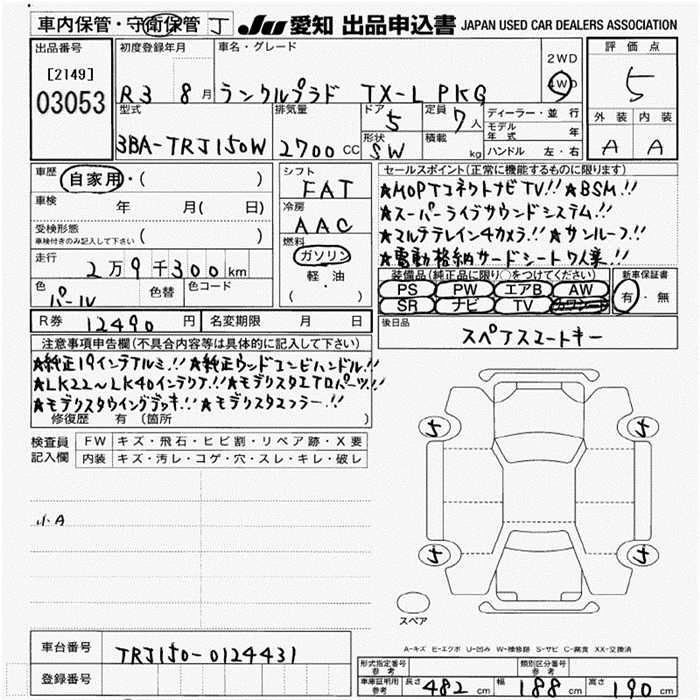 車内保管・守衛保管 J JU 愛知 出品申込書 JAPAN USED CAR DEALERS ASSOCIATION
出品番号 初度登録年月 車名・グレード 2WD 4WD 評価点
[2149]
03053 R3 8月 ランクルプラド TX-L PKG 5
型式 排気量 ドア 5 定員 7人 ディーラー・並行 外装 内装
3BA-TRJ150W 2700CC 形状 SW 積載 kg モデル年式 年 A A
ハンドル 左・右
車歴 自家用・( ) シフト FAT セールスポイント(正常に機能するものに限ります)
★MOPTコネクトナビTV!! ★BSM!!
車検 年 月( 日) 冷房 AAC ★スーパーライブサウンドシステム!!
受検形態 ( ) ★マルチテレイン4カメラ!! ★サンルーフ!!
車検付きのみ記入して下さい 燃料 ガソリン ★電動格納サードシート 7人乗!!
走行 2万9千300km 軽・油 ( ) 装備品(純正品に限り○をつけてください) 新車保証書
PS PW エアB AW 有・無
色 パール 色替 色コード SR ナビ TV カワシート
R券 12490円 名変期限 月 日 後日品 スペアスマートキー
注意事項申告欄(不具合内容等は具体的に記入して下さい)
★純正19インテアルミ!! ★純正ウッドコンビハンドル!!
★LK22〜LK40インテリア!! ★モデリスタエアロパーツ!!
★モデリスタウイングデッキ!! ★モデリスタマフラー!!
修復歴 有 (箇所
検査員記入欄 FW キズ・飛石・ヒビ割・リペア跡・X要
内装 キズ・汚レ・コゲ・穴・スレ・キレ・破レ
小A
4 4
4 4
スペア
A-キズ E-エクボ U-凹み W-補修跡 S-サビ C-腐食 XX-交換済
車台番号 TRJ150-0124431
登録番号
形式指定番号 参考 類別区分番号 参考
車庫証明用 参考 長さ 482cm 幅 188cm 高さ 190cm